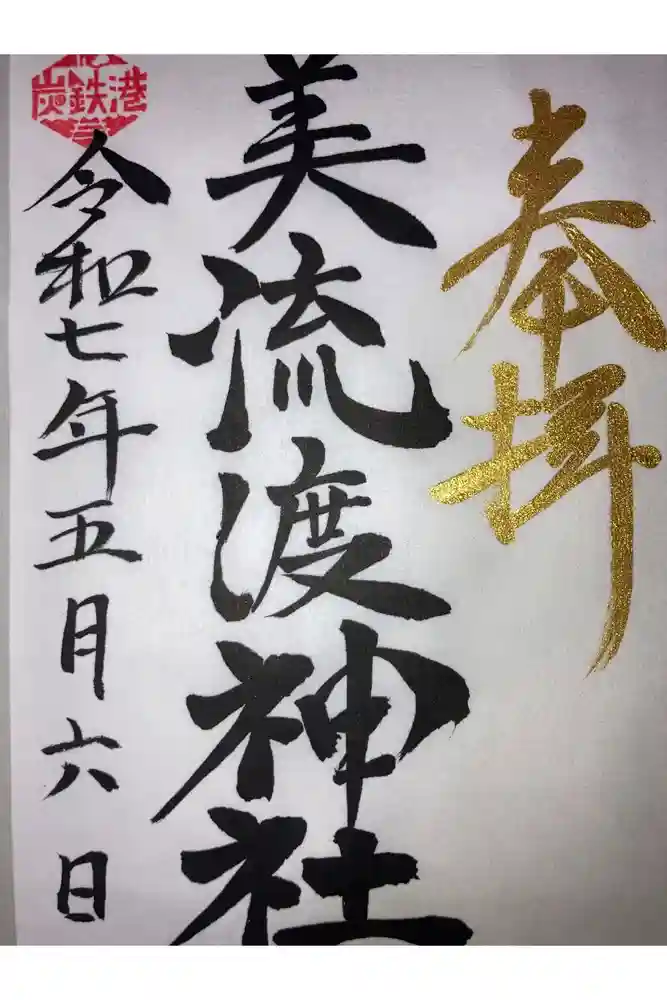 奉拝
美流渡神社
炭鉄港
令和七年五月六日